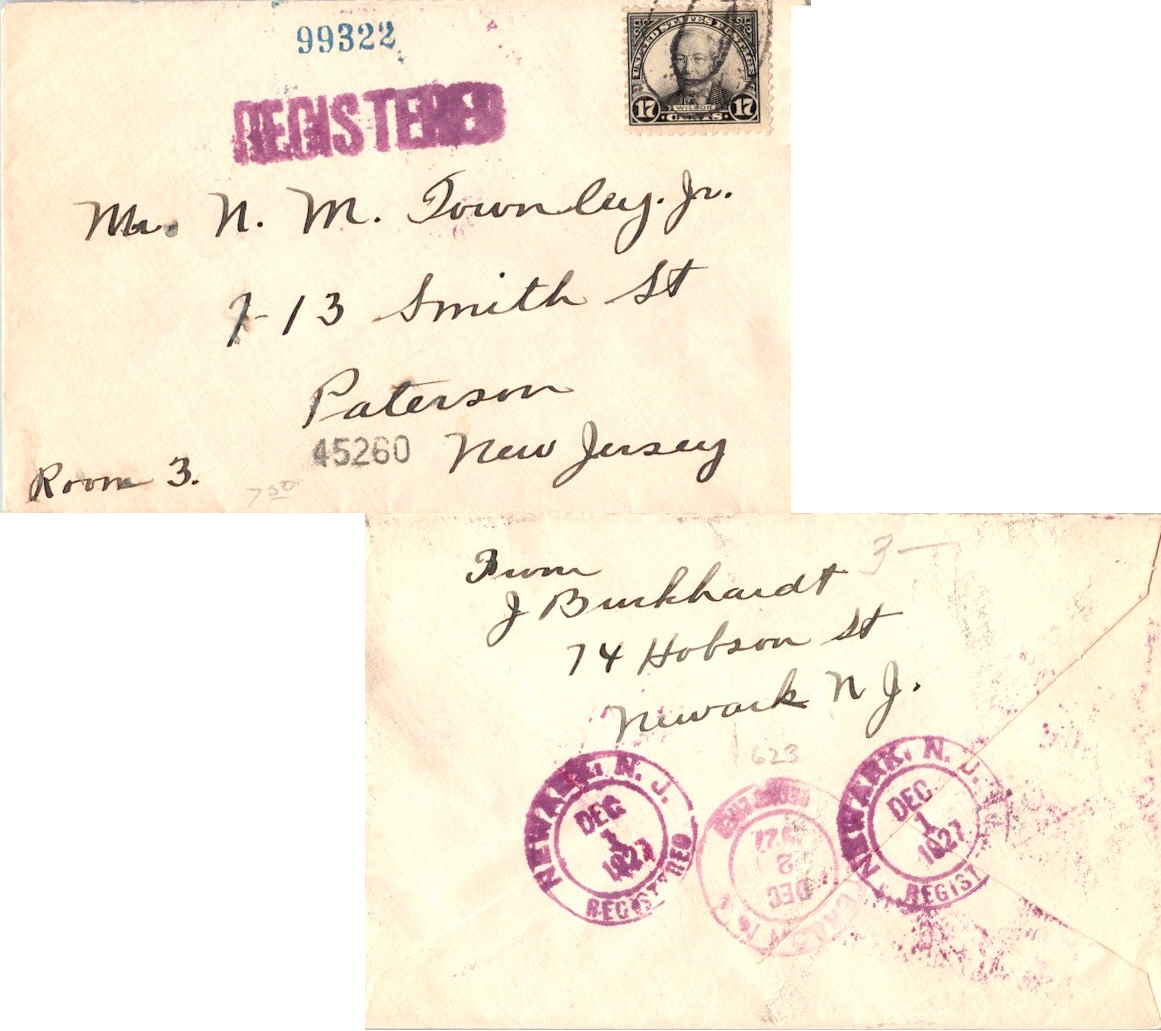 99322
REGISTERED
UNITED STATES POSTAGE
WILSON
17 CENTS 17
Mr. N. M. Townley. Jr.
7-13 Smith St
Paterson
45260 New Jersey
Room 3.
From
3
J Burkhardt
74 Hobson St
Newark N J.
623
NEWARK, N. J.
DEC
1
1927
REGISTERED
REGISTERED
DEC
2
1927
NEWARK, N. J.
DEC
1
1927
REGIST